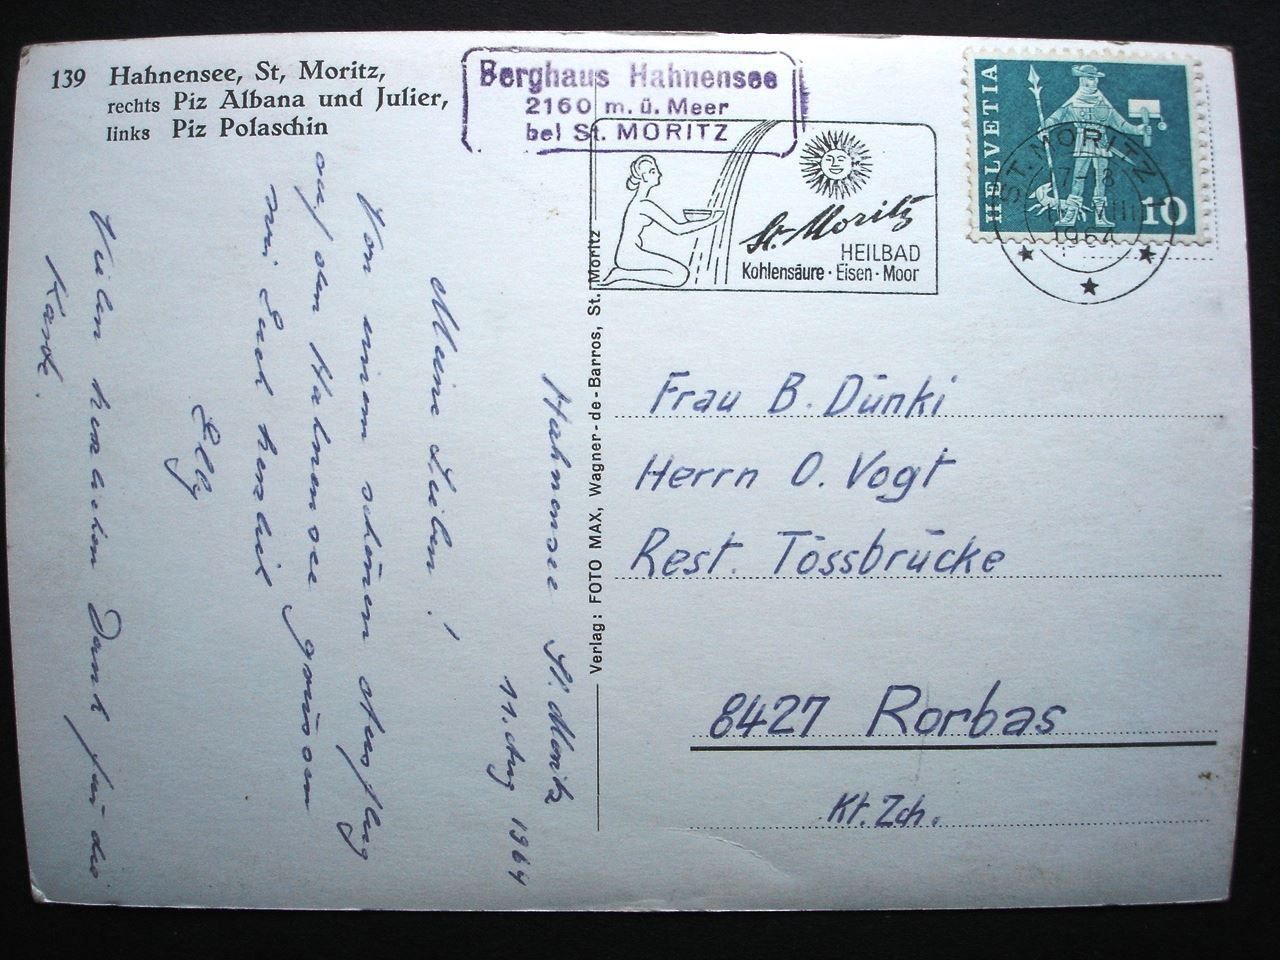 139 Hahnensee, St, Moritz,
rechts Piz Albana und Julier,
links Piz Polaschin
Berghaus Hahnensee
2160 m. ü. Meer
bei St. MORITZ
St. Moritz
HEILBAD
Kohlensäure · Eisen · Moor
HELVETIA
10
ST. MORITZ
7-8
VIII
1964
Verlag: FOTO MAX, Wagner-de-Barros, St. Moritz
Hahnensee St. Moritz
11. Aug 1964
Meine Lieben!
Von einem schönen Ausflug
auf den Hahnensee grüssen
wir Euch herzlich
Elly
Vielen herzlichen Dank für die
Karte.
Frau B. Dünki
Herrn O. Vogt
Rest. Tössbrücke
8427 Rorbas
Kt. Zch.